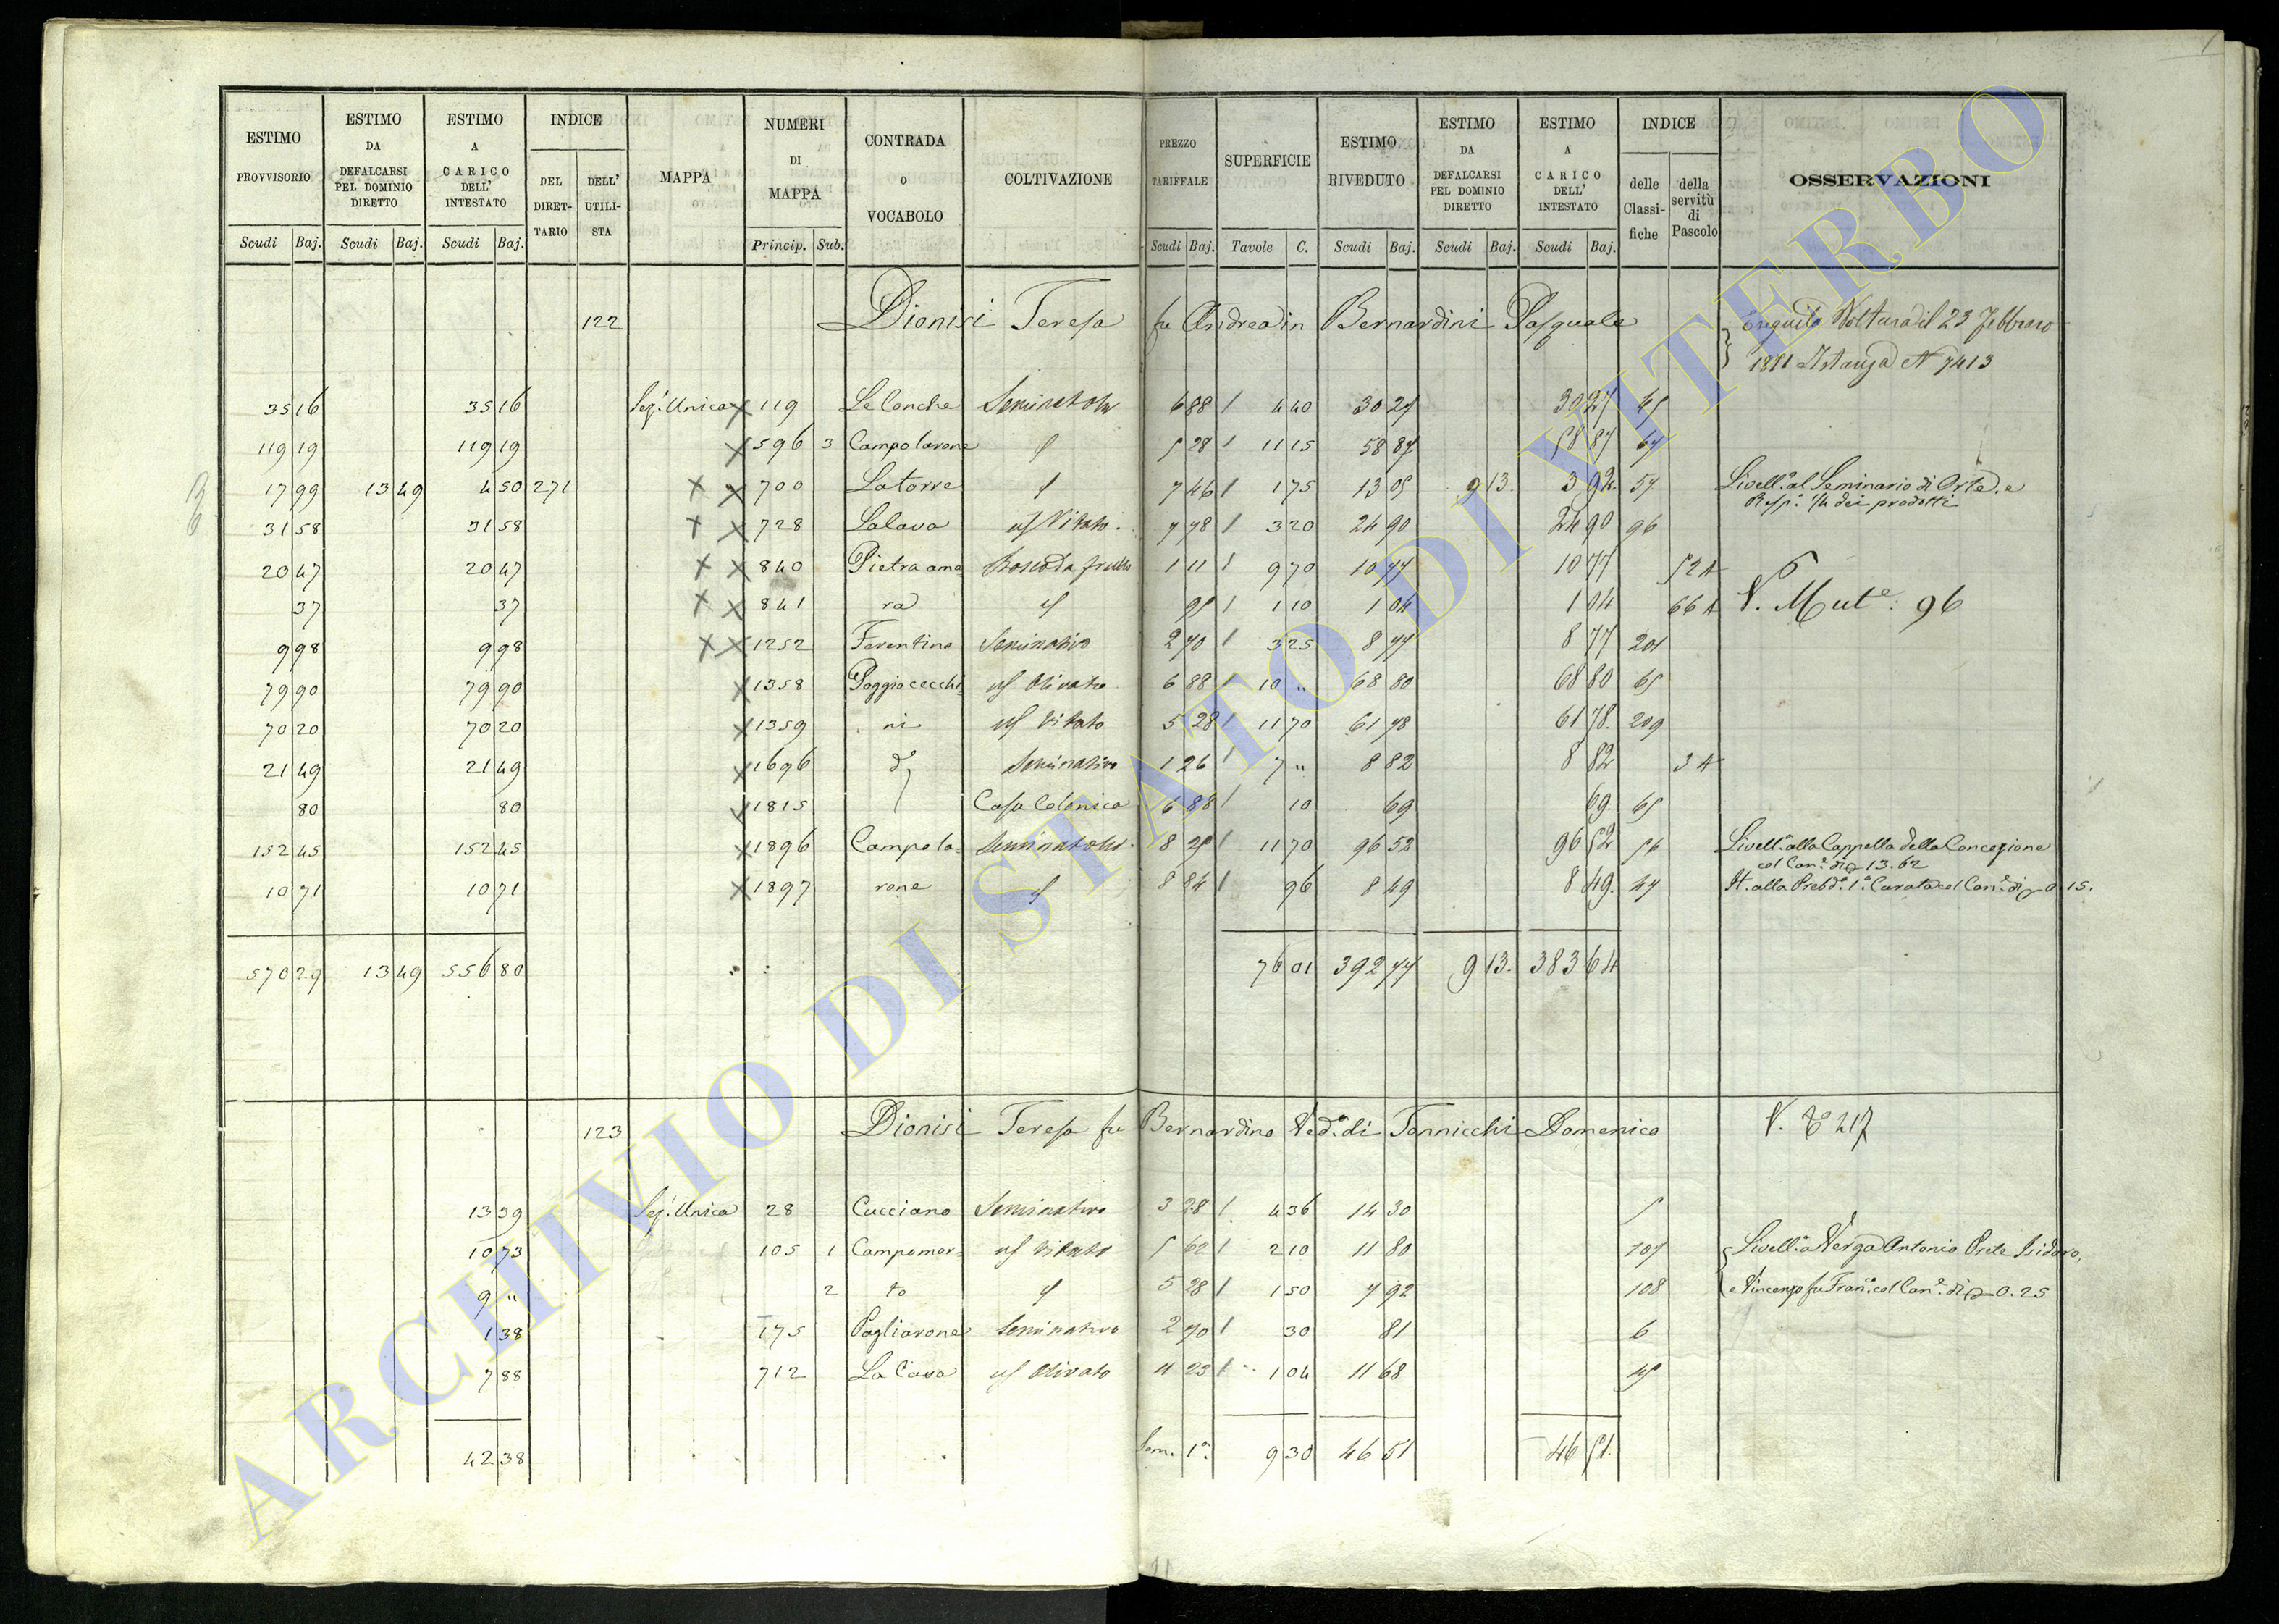 ESTIMO PROVVISORIO | ESTIMO DA DEFALCARSI PEL DOMINIO DIRETTO | ESTIMO A CARICO DELL' INTESTATO | INDICE DEL DIRETTARIO | DELL' UTILISTA | MAPPA | NUMERI DI MAPPA | CONTRADA O VOCABOLO | COLTIVAZIONE | PREZZO TARIFFALE | SUPERFICIE | ESTIMO RIVEDUTO | ESTIMO DA DEFALCARSI PEL DOMINIO DIRETTO | ESTIMO A CARICO DELL' INTESTATO | INDICE delle Classifiche | della servitù di Pascolo | OSSERVAZIONI
Scudi Baj. | Scudi Baj. | Scudi Baj. | Princip. Sub. | Scudi Baj. | Tavole C. | Scudi Baj. | Scudi Baj. | Scudi Baj.
122 Dionisi Teresa fu Andrea in Bernardini Pasquale Eseguita Voltura il 23 Febbraro
1881 Istanza N 7413
35 16 35 16 Sez. Unica x 119 Le Conche 6 88 4 40 30 27 30 27 45
119 19 119 19 x 596 3 Campo larone 5 28 11 15 58 87 58 87 67
17 99 13 49 4 50 271 x x 700 La torre 7 46 1 75 13 05 9 13. 3 92. 57 Livell. al Seminario di Orte e
Resp. 1/4 dei prodotti
31 58 31 58 x x 728 La Cava Vitato. 7 78 3 20 24 90 24 90 96
20 47 20 47 x x 840 Pietra ama- Bosco da frutto 1 11 9 70 10 77 10 77 52 A
37 37 x x 841 ra 95 1 10 1 04 1 04 66 A V. Mut. 96
9 98 9 98 x x 1252 Ferentino Seminativo 2 70 3 25 8 77 8 77 201
79 90 79 90 x 1358 Poggio cecchi- Olivato 6 88 10 " 68 80 68 80 65
70 20 70 20 x 1359 ni Vitato 5 28 11 70 61 78 61 78. 209
21 49 21 49 x 1696 d° Seminativo 1 26 7 " 8 82 8 82 3 A
80 80 x 1815 Casa Colonica 6 88 10 69 69. 65
152 45 152 45 x 1896 Campo la- 8 25 11 70 96 52 96 52 56 Livell. alla Cappella della Concezione
col Can. di 13.62
10 71 10 71 x 1897 rone 8 84 96 8 49 8 49. 47 It. alla Prebd. 1a. Curata col Can. di 0.15.
570 29 13 49 556 80 76 01 392 77 9 13. 383 64
123 Dionisi Teresa fu Bernardino Ved. di Tonnicchi Domenico V. 217
13 39 Sez. Unica 28 Cucciano Seminativo 3 28 4 36 14 30 5
10 73 105 1 Campomor- Vitato 5 62 2 10 11 80 107 Livell. a Verga Antonio Prete Isidoro,
9 " 2 to 5 28 1 50 7 92 108 e Vincenzo fu Fran. col Can. di 0.25
1 38 175 Pagliarone Seminativo 2 70 30 81 6
7 88 712 La Cava Olivato 11 23 1 04 11 68 45
42 38 Som. 1a. 9 30 46 51 46 51.
ARCHIVIO DI STATO DI VITERBO